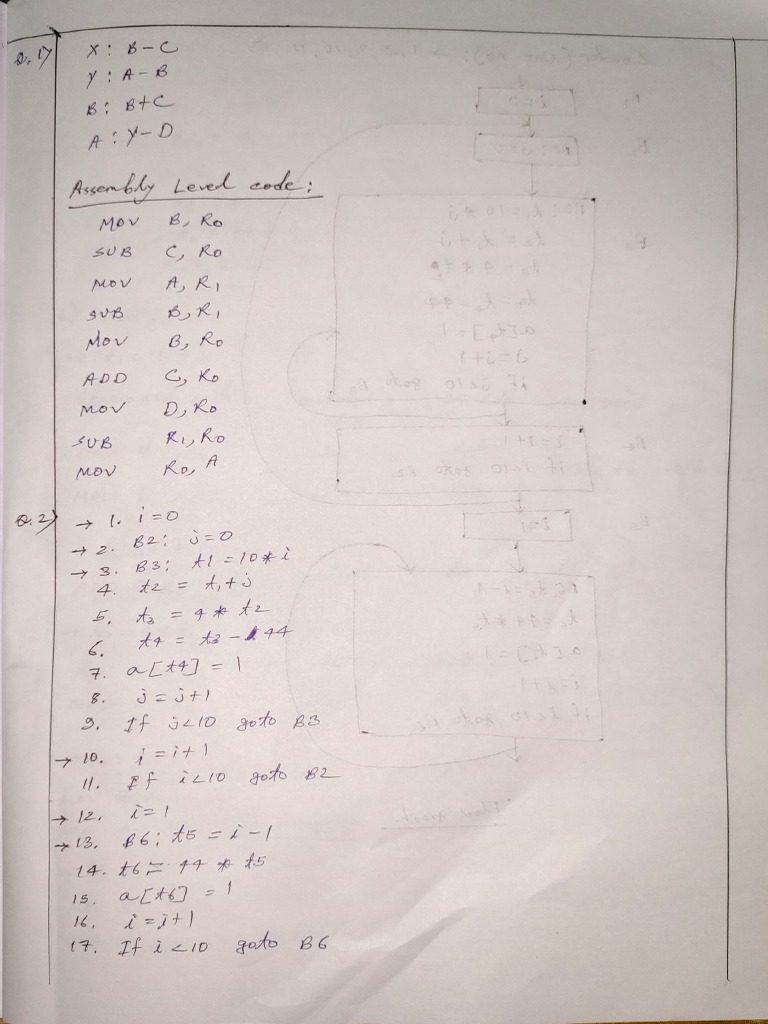 Q.1) X : B-C
Y : A-B
B : B+C
A : Y-D
Assembly Level code :
MOV B, R0
SUB C, R0
MOV A, R1
SUB B, R1
MOV B, R0
ADD C, R0
MOV D, R0
SUB R1, R0
MOV R0, A
Q.2) → 1. i=0
→ 2. B2: j=0
→ 3. B3: t1 = 10 * i
4. t2 = t1 + j
5. t3 = 4 * t2
6. t4 = t3 - 44
7. a[t4] = 1
8. j = j+1
9. If j<10 goto B3
→ 10. i = i+1
11. If i<10 goto B2
→ 12. i=1
→ 13. B6: t5 = i-1
14. t6 = 44 * t5
15. a[t6] = 1
16. i = i+1
17. If i<10 goto B6